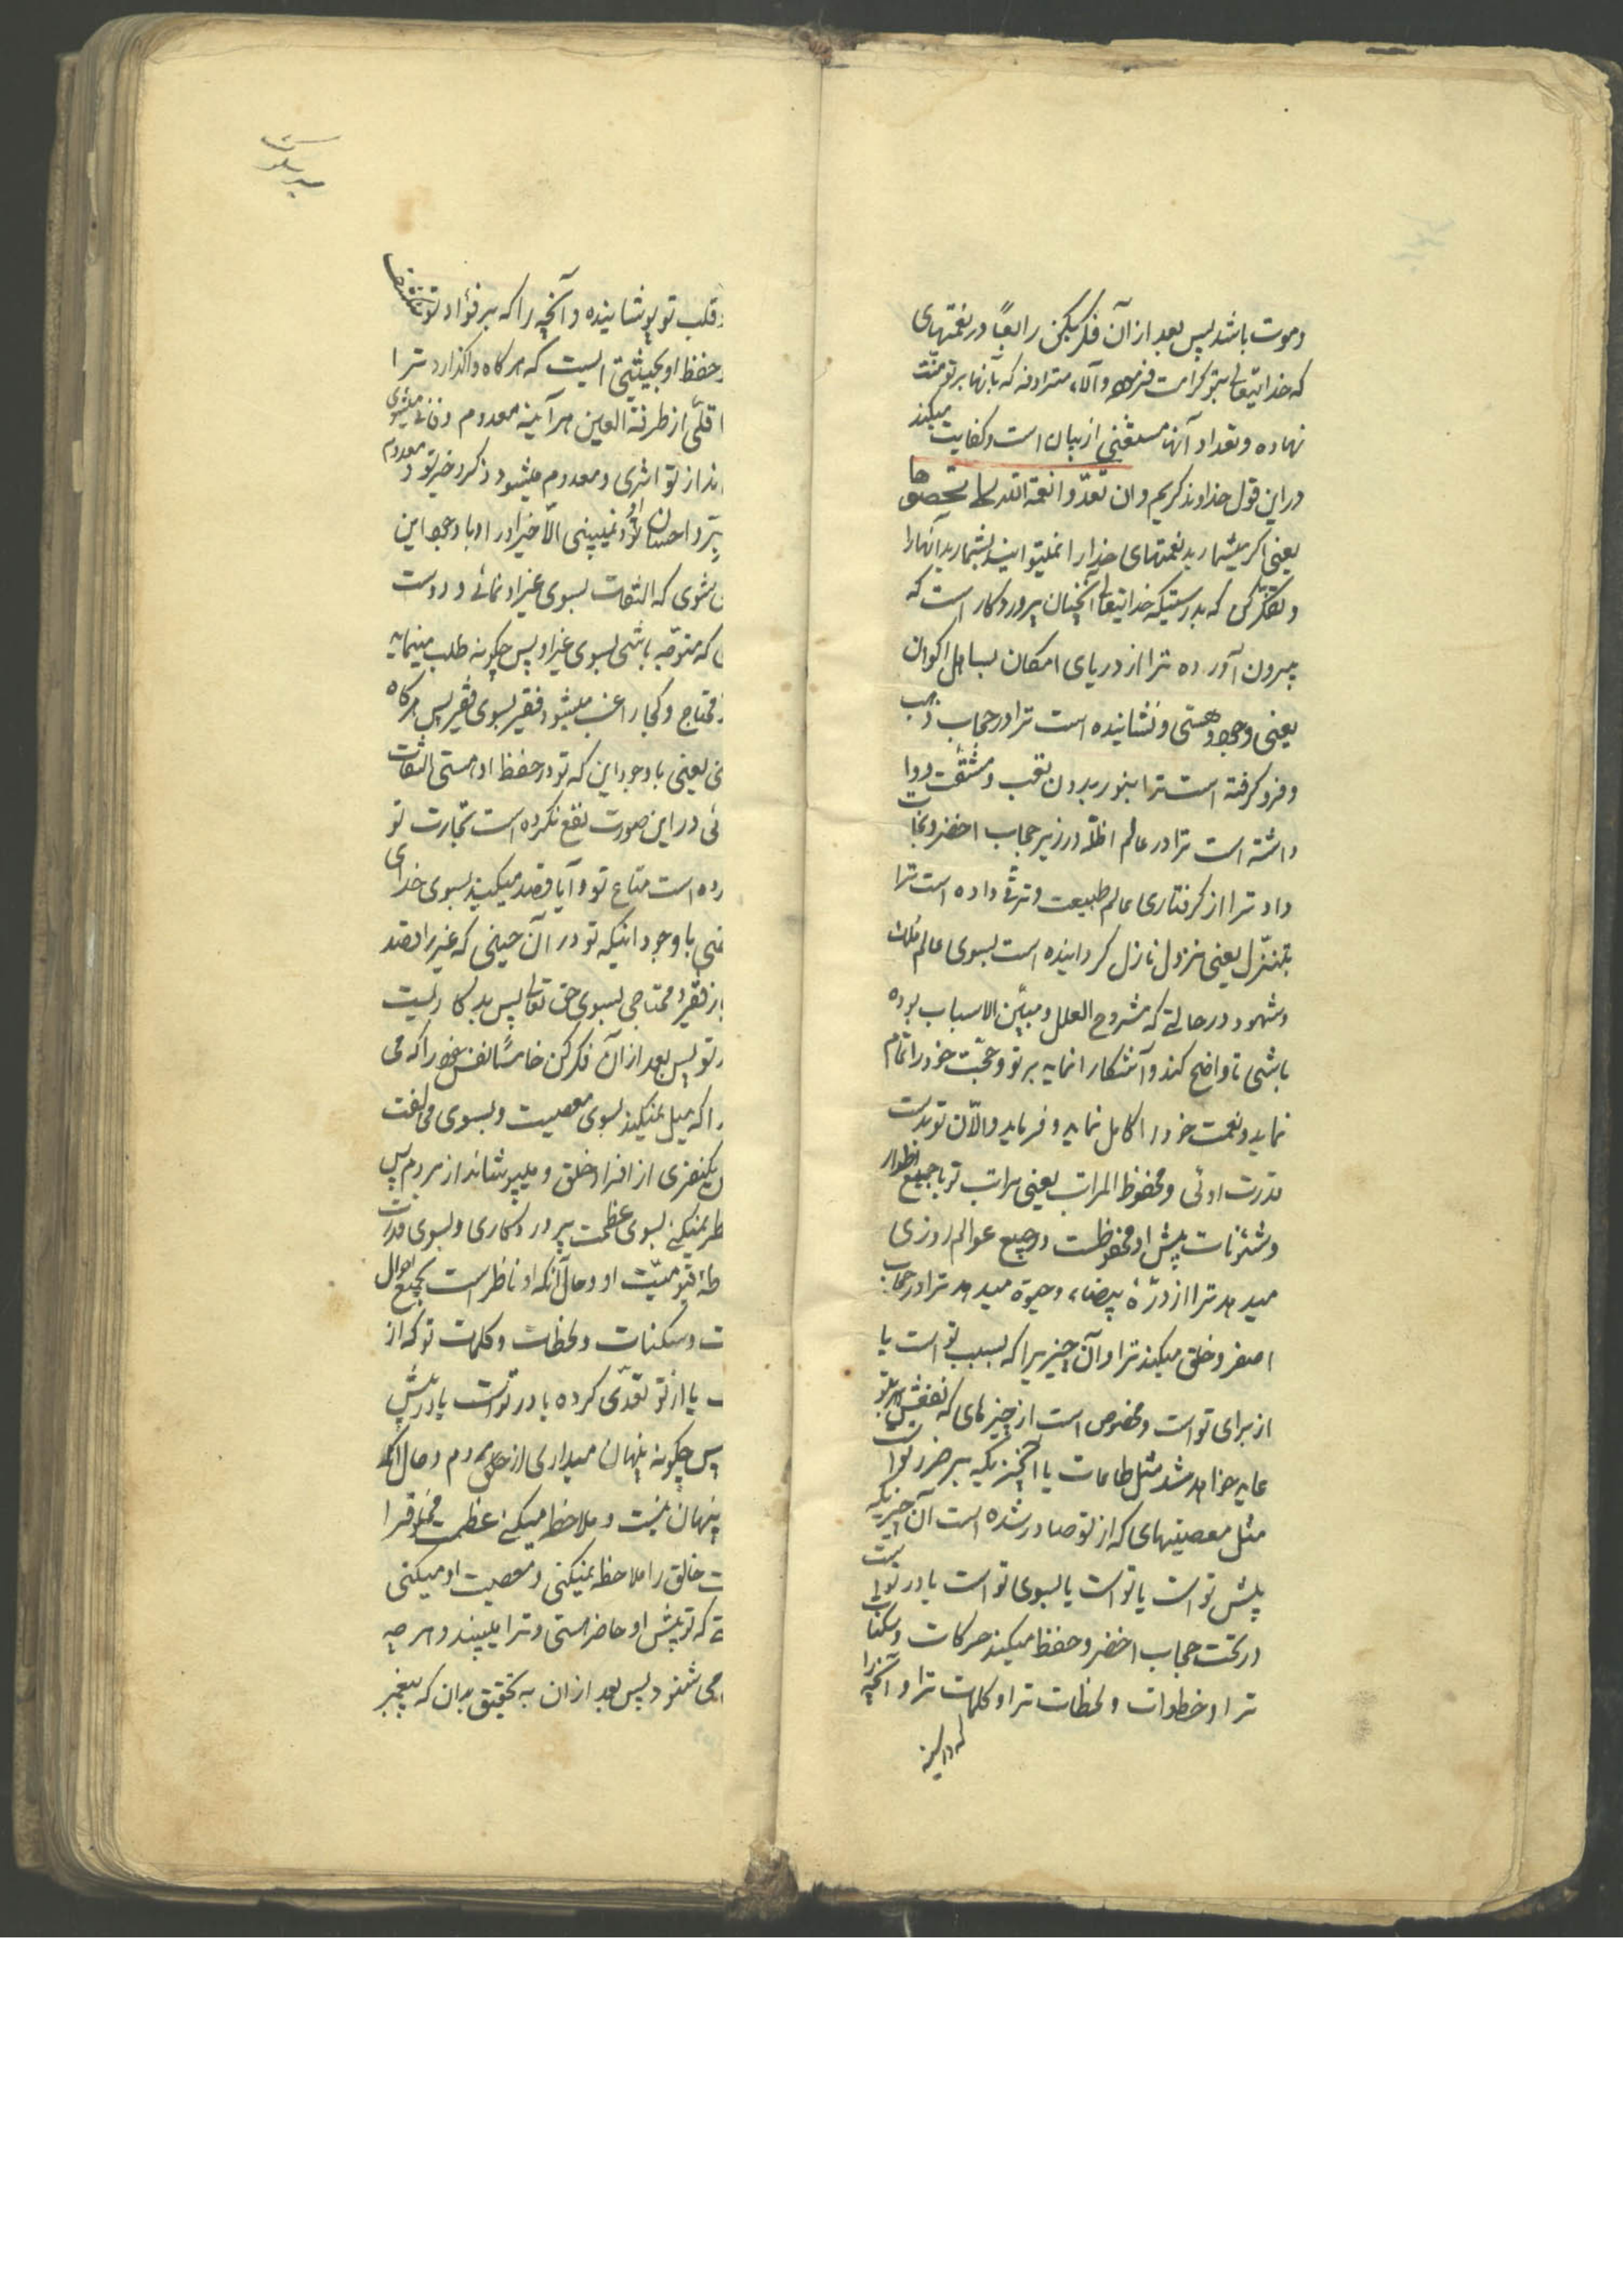 وموت باشد پس بعد از آن فکر بکن رابعاً در نعمتهای
که خدایتعالی بتو کرامت فرموده وآلاء مترادفه که بآنها بر تو منت
نهاده وتعداد آنها مستغنی از بیان است وکفایت میکند
در این قول خداوند کریم وان تعدّوا نعمة الله لا تحصوها
یعنی اگر بشمارید نعمتهای خدا را نمیتوانید بشمارید آنها را
وتفکر کن که بدرستیکه خدایتعالی آنچنان پروردگار است که
بیرون آورده ترا از دریای امکان بساحل اکوان
یعنی وجود وهستی ونشانیده است ترا در حجاب ذهب
وفرو گرفته است ترا بنور بدون تعب ومشقت ووا
داشته است ترا در عالم اظلّه در زیر حجاب اخضر ونجات
داد ترا از گرفتاری عالم طبیعت وترقی داده است ترا
بتنزّل یعنی نزول نازل گردانیده است بسوی عالم ملک
وشهود در حالتی که مشروح العلل ومبیّن الاسباب بوده
باشی تا واضح کند وآشکارا نماید بر تو وحجّت خود را تمام
نماید ونعمت خود را کامل نماید وفرماید والآن تو بدست
قدرت اوئی ومحفوظ المراتب یعنی مراتب تو با جمیع اطوار
وشئونات پیش او محفوظست در جمیع عوالم روزی
میدهد ترا از درّهٔ بیضاء وحیوة میدهد ترا در حجاب
اصفر وخلق میکند ترا وآن چیزیرا که بسبب تو است یا
از برای تو است ومخصوص است از چیزهای که نفعش بتو
عاید خواهد شد مثل طاعات یا آنچیزیکه بر ضرر تو است
مثل معصیتهای که از تو صادر شده است آن چیزیکه
پیش تو است یا تو است یا بسوی تو است یا در تو است
در تحت حجاب اخضر وحفظ میکند حرکات وسکنات
ترا وخطوات ولحظات ترا وکلمات ترا وآنچه را
که در
قلب تو پوشانیده وآنچه را که بر فؤاد تو
حفظ او بحیثیتی است که هر گاه واگذارد ترا
اقلّی از طرفة العین هر آینه معدوم وفانی میشوی
ند از تو اثری ومعدوم میشود ذکر وخبر تو ومعدوم
برّ واحسان او ونمیبینی الّا خیر او را وبا وجود این
شوی که التفات بسوی غیر او نمائی ودوست
که متوجّه باشی بسوی غیر او پس چگونه طلب مینماید
محتاج وکجا راغب میشود فقیر بسوی فقیر پس هر گاه
نی یعنی با وجود این که تو در حفظ او هستی التفات
ئی در این صورت نفع نکرده است تجارت تو
رده است متاع تو وآیا قصد میکنید بسوی خدای
غنی با وجود اینکه تو در آن حینی که غیر را قصد
فقیر ومحتاجی بسوی حق تعالی پس بد کاریست
تو پس بعد از آن فکر کن خامساً نفس خود را که می
را که میل میکند بسوی معصیت وبسوی مخالفت
یکنفری از افراد خلق ومیپوشاند از مردم پس
نظر نمیکنی بسوی عظمت پروردگاری وبسوی قدرت
طهٔ قیومیّت او وحال آنکه او ناظر است بجمیع احوال
ت وسکنات ولحظات وکلمات تو که از
یا از تو تعدّی کرده یا در تو است یا در پیش
پس چگونه پنهان میداری از خلق مردم وحال آنکه
پنهان نیست وملاحظه میکنی عظمت مخلوق را
ت خالق را ملاحظه نمیکنی ومعصیت او میکنی
که تو پیش او حاضر هستی وترا میبیند وهر چه
می شنود پس بعد از آن به تحقیق بدان که پیغمبر